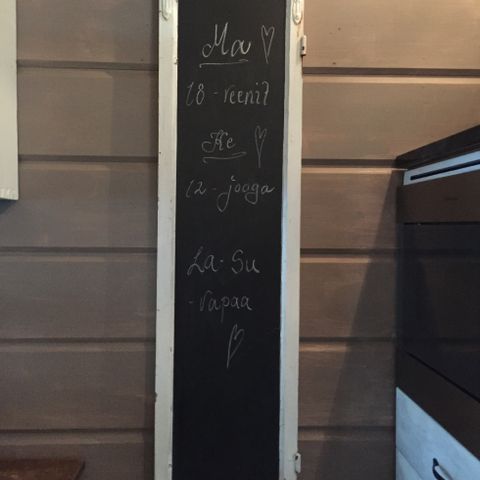 Ma
18 - reenit
Ke
12 - jooga
La - Su
- vapaa